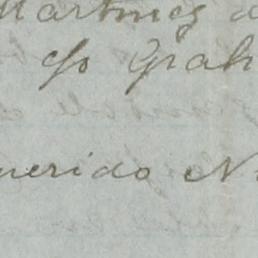 Martinez
c/o Grah
uerido N